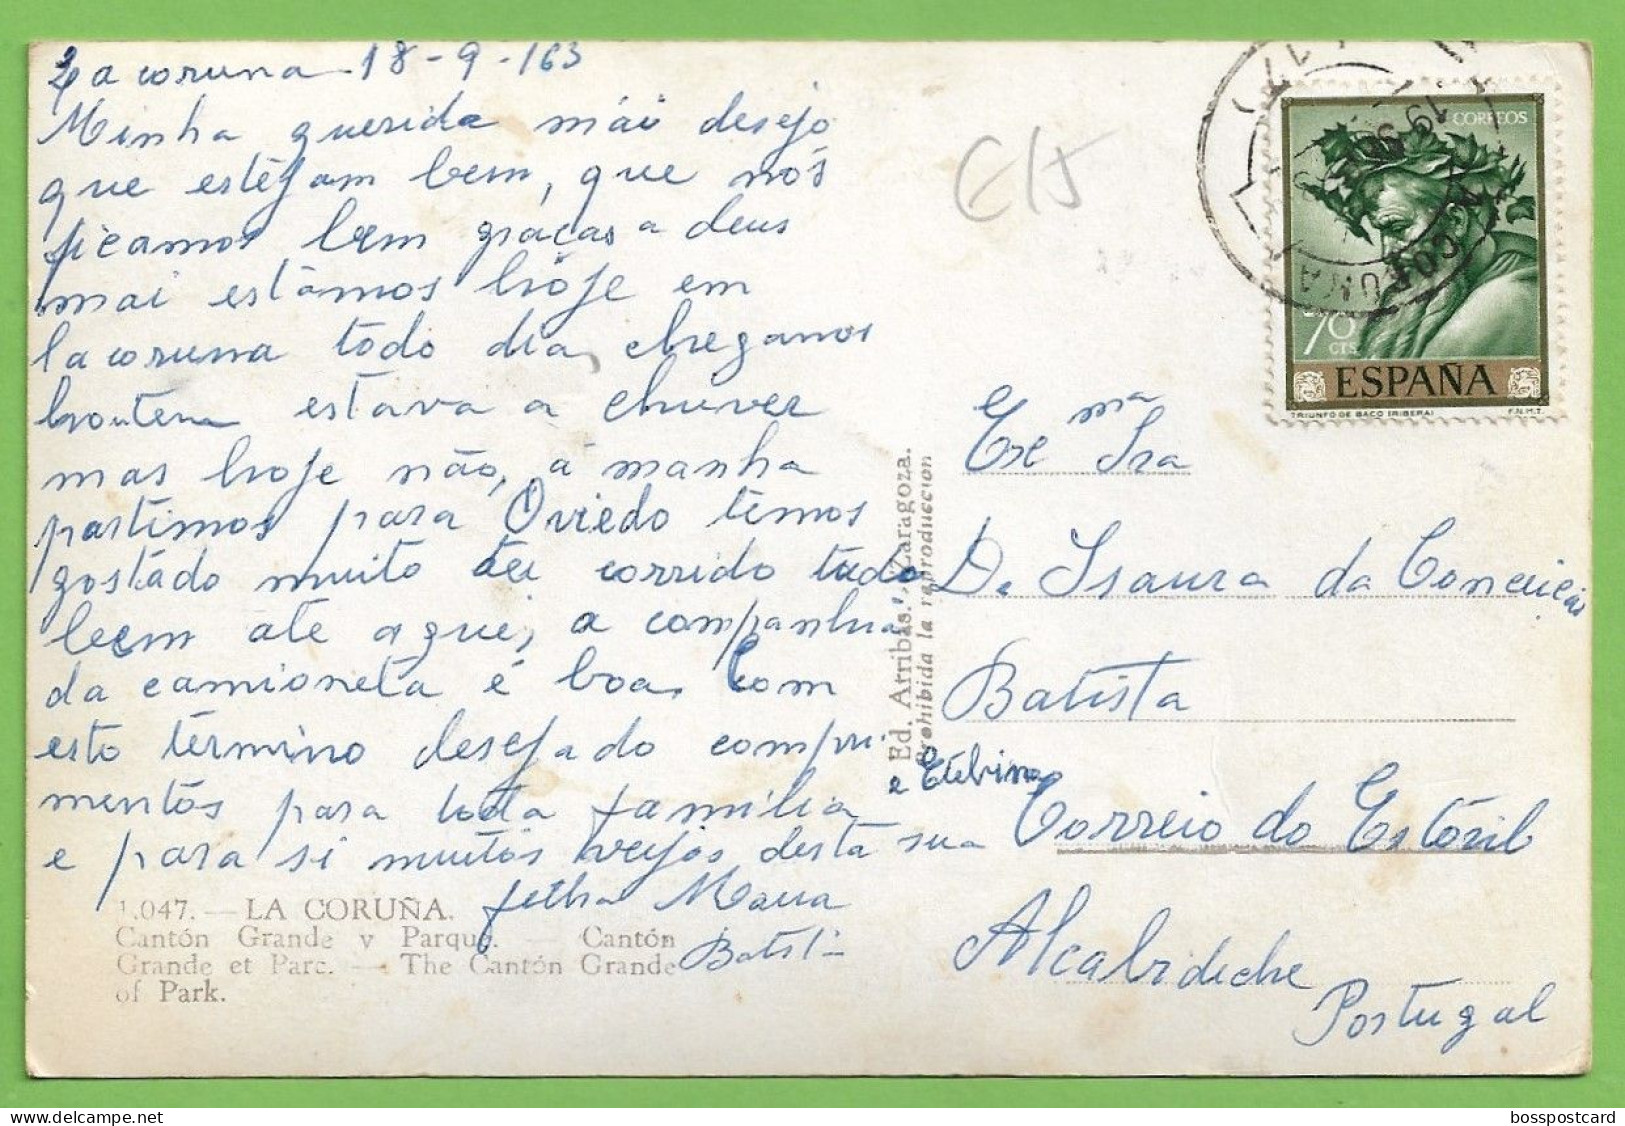 La coruna 18-9-163
Minha querida mãi desejo
que estejam bem, que nós
ficamos bem graças a deus
mai estâmos hóje em
la coruna todo dia, chegamos
hontem estava a chuver
mas hoje não, á manha
partimos para Oviedo temos
gostádo muito tei corrido tudo
beem até aqui, a companhia
da camioneta é boa, Com
esto términο desejado compri
mentos para toda família
e para si muitos veijos desta sua
felha Maria
Batista
e Etelvina
Exma Sra
Da Isaura da Conceição
Batista
Correio do Estóril
Alcabideche
Portugal
C/5
CORREOS
70
CTS
ESPAÑA
TRIUNFO DE BACO (RIBERA)
F.N.M.T.
CORUÑA
Ed. Arribas.-Zaragoza.
Prohibida la reproduccion
1.047. — LA CORUÑA.
Cantón Grande y Parque. — Cantón
Grande et Parc. — The Cantón Grande
of Park.
bosspostcard